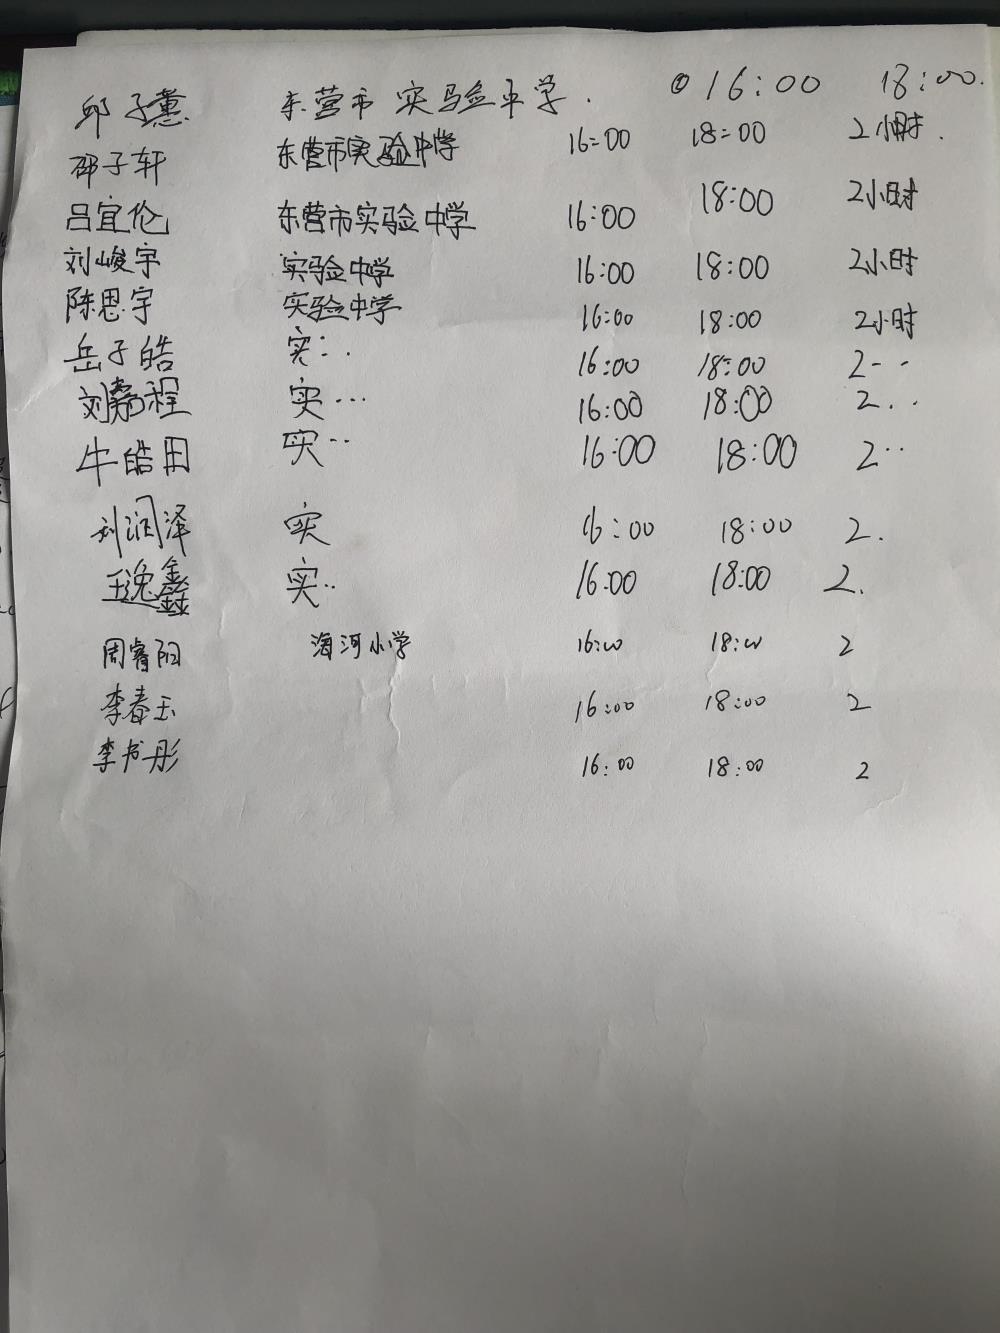 邱子薰 东营市实验中学. 16:00 18:00.
邵子轩 东营市实验中学 16:00 18:00 2小时.
吕宜伦 东营市实验中学 16:00 18:00 2小时
刘峻宇 实验中学 16:00 18:00 2小时
陈思宇 实验中学 16:00 18:00 2小时
岳子皓 实... 16:00 18:00 2..
刘嘉程 实... 16:00 18:00 2..
牛皓田 实.. 16:00 18:00 2..
刘润泽 实 16:00 18:00 2.
王逸鑫 实.. 16:00 18:00 2.
周睿阳 海河小学 16:00 18:00 2
李春玉 16:00 18:00 2
李书彤 16:00 18:00 2